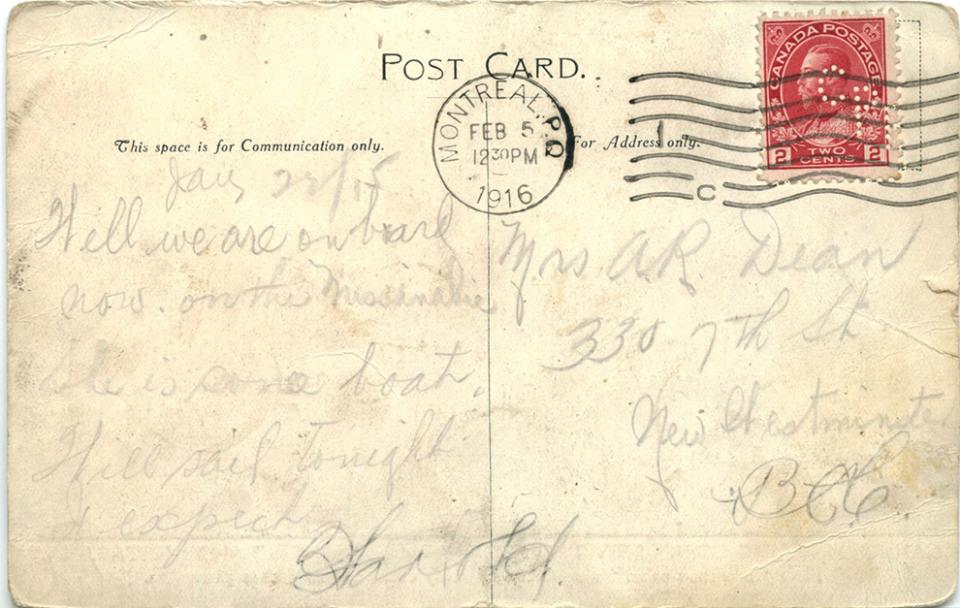 POST CARD.
CANADA POSTAGE
2 TWO CENTS 2
MONTREAL, P.Q.
FEB 5
12 30 PM
1916
C
This space is for Communication only.
For Address only.
Well we are on board
now. on the Missanabie
She is some boat,
Will sail tonight
I expect
Harold
Mrs A.R. Dean
330 7th St
New Westminster
B.C.